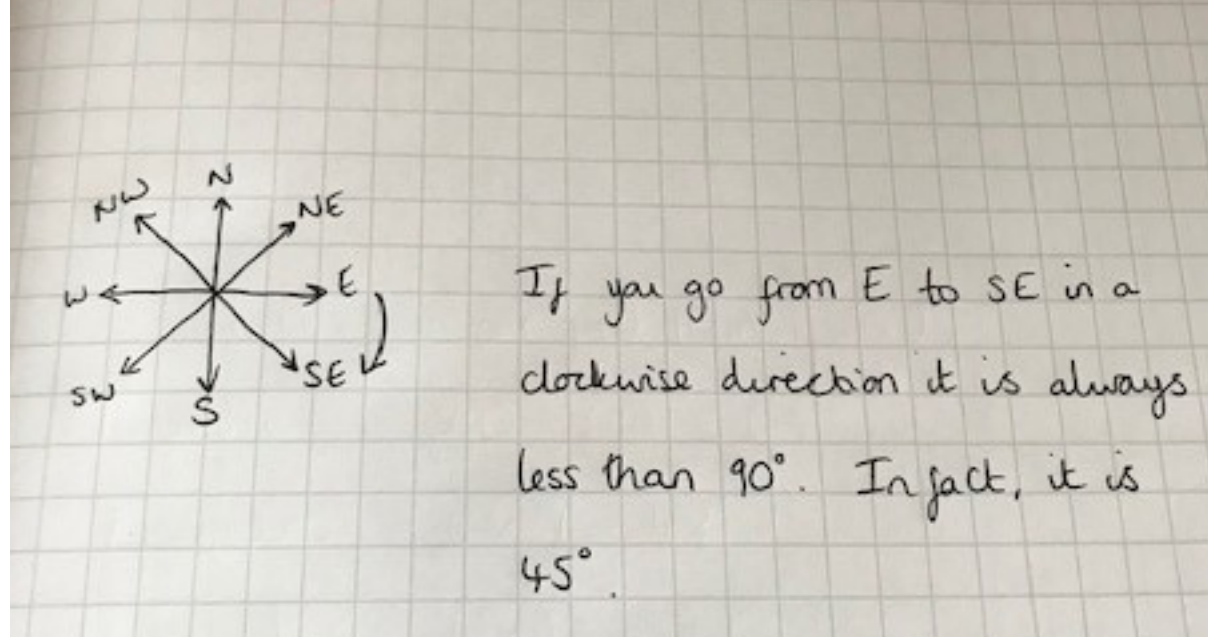 N
NW
NE
W
E
SW
SE
S
If you go from E to SE in a
clockwise direction it is always
less than 90°. In fact, it is
45°.